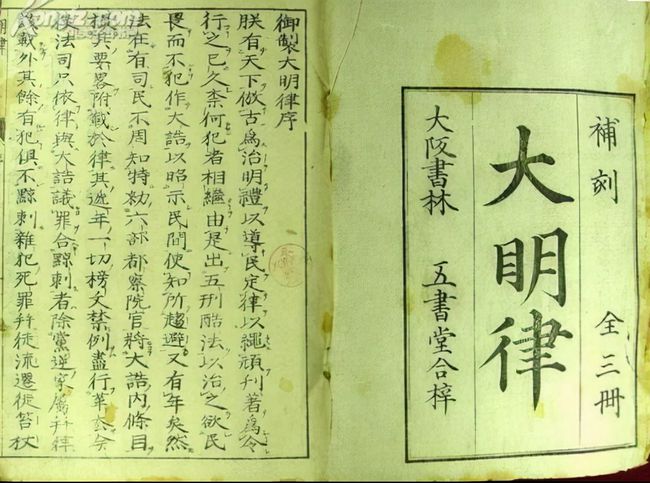 補刻 全三冊
大明律
大阪書林 五書堂合梓
御製大明律序
朕有天下倣古爲治明禮以導民定律以繩頑刊著爲令
行之已久柰何犯者相繼由是出五刑酷法以治之欲民
畏而不犯作大誥以昭示民間使知所趨避又有年矣然
法在有司民不周知特勑六部都察院官將大誥内條目
撮其要畧附載於律其逓年一切榜文禁例盡行革去今
後法司只依律與大誥議罪合黥刺者除黨逆家属并律
該載外其餘有犯俱不黥刺雜犯死罪并徒流遷徙笞杖
明律